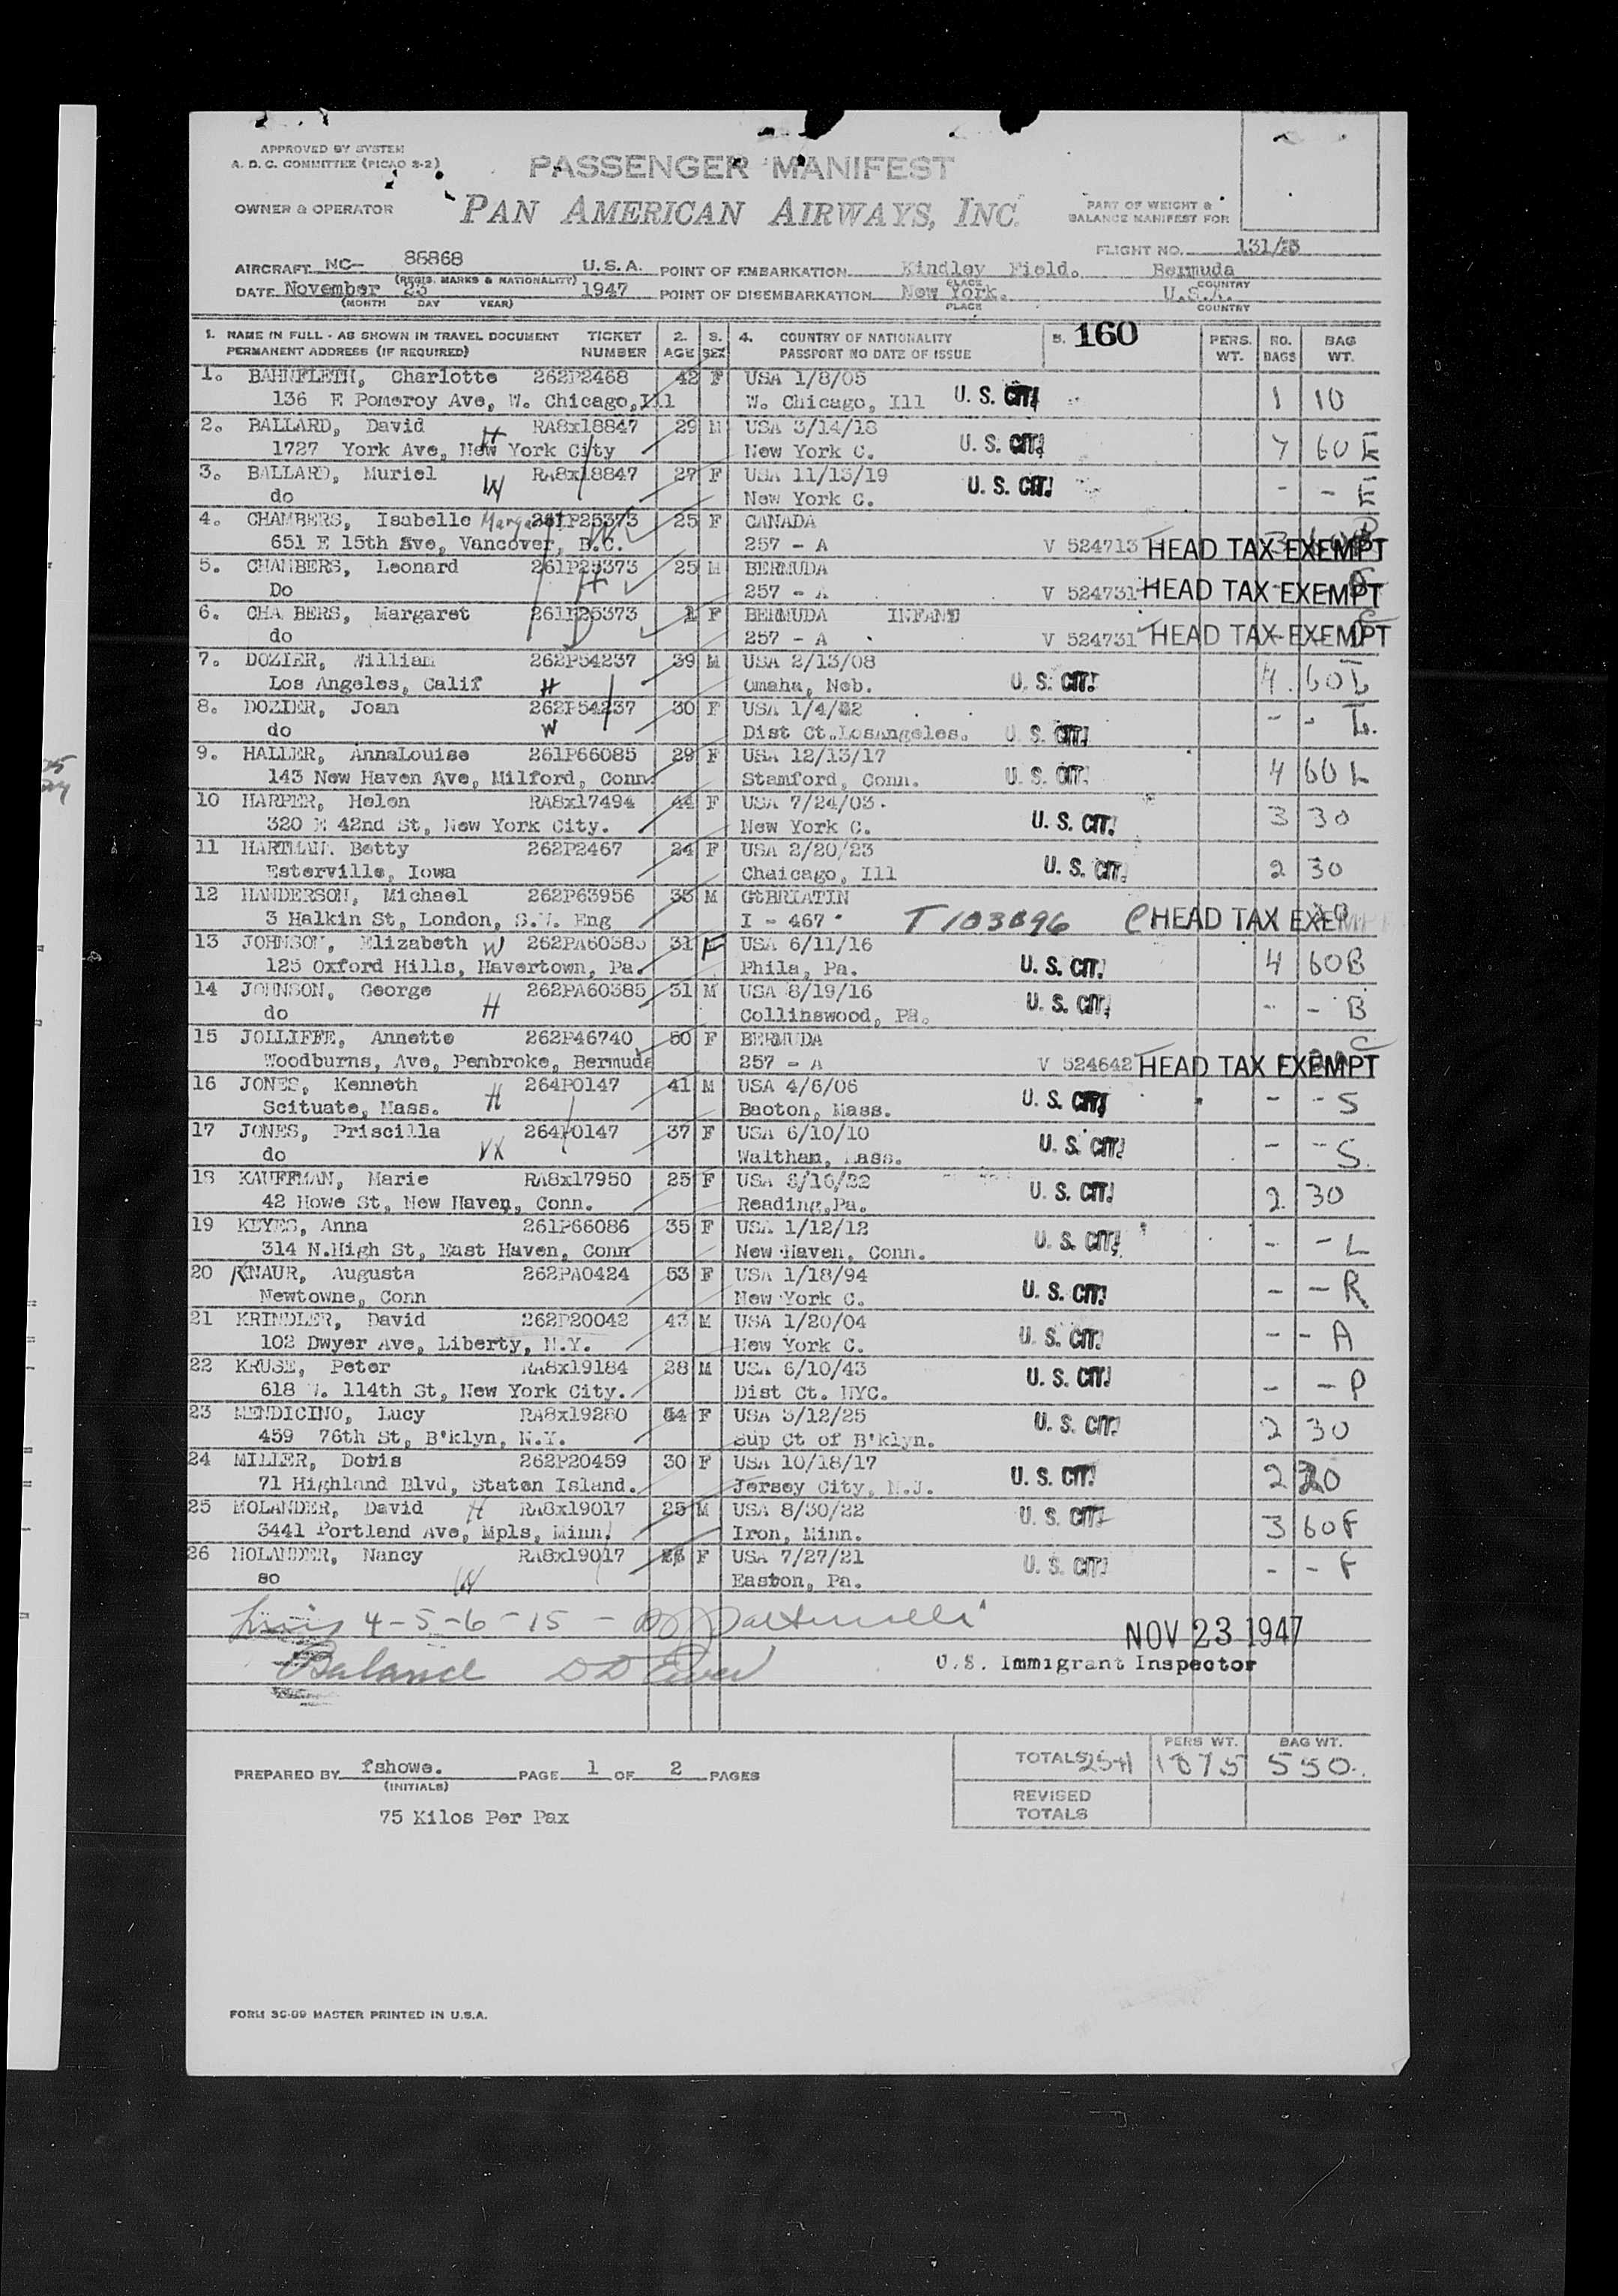 APPROVED BY SYSTEM
A. D. C. COMMITTEE (PICAO S-2)
PASSENGER MANIFEST
OWNER & OPERATOR PAN AMERICAN AIRWAYS, INC.
PART OF WEIGHT &
BALANCE MANIFEST FOR
FLIGHT NO. 131/
AIRCRAFT NC- 86868 U.S.A. POINT OF EMBARKATION Kindley Field. Bermuda
(REGIS. MARKS & NATIONALITY) PLACE COUNTRY
DATE November 23 1947 POINT OF DISEMBARKATION New York. U.S.A.
(MONTH DAY YEAR) PLACE COUNTRY
1. NAME IN FULL - AS SHOWN IN TRAVEL DOCUMENT TICKET 2. 3. 4. COUNTRY OF NATIONALITY 5. 160 PERS. NO. BAG
PERMANENT ADDRESS (IF REQUIRED) NUMBER AGE SEX PASSPORT NO DATE OF ISSUE WT. BAGS WT.
1. BAHNFLETH, Charlotte 262P2468 42 F USA 1/8/05
136 E Pomeroy Ave, W. Chicago, Ill W. Chicago, Ill U. S. CIT. 1 10
2. BALLARD, David RA8x18847 29 M USA 3/14/18
1727 York Ave, New York City H New York C. U. S. CIT. 7 60 E
3. BALLARD, Muriel W RA8x18847 27 F USA 11/13/19
do New York C. U. S. CIT. - - E
4. CHAMBERS, Isabelle 261P25373 25 F CANADA
651 E 15th Ave, Vancover, B.C. W 257 - A V 524713 HEAD TAX EXEMPT
5. CHAMBERS, Leonard 261P25373 25 M BERMUDA
Do H 257 - A V 524731 HEAD TAX EXEMPT
6. CHA BERS, Margaret 261P25373 1 F BERMUDA INFANT
do D 257 - A V 524731 HEAD TAX EXEMPT
7. DOZIER, William 262P54237 39 M USA 2/13/08
Los Angeles, Calif H Omaha, Neb. U. S. CIT. 4. 60 L
8. DOZIER, Joan 262P54237 30 F USA 1/4/
do W Dist Ct.LosAngeles. U. S. CIT. - - L.
9. HALLER, AnnaLouise 261P66085 29 F USA 12/13/17
143 New Haven Ave, Milford, Conn. Stamford, Conn. U. S. CIT. 4 60 L
10 HARPER, Helen RA8x17494 44 F USA 7/24/03.
320 E 42nd St, New York City. New York C. U. S. CIT. 3 30
11 HARTMAN. Betty 262P2467 24 F USA 2/20/23
Esterville, Iowa Chaicago, Ill U. S. CIT. 2 30
12 HANDERSON, Michael 262P63956 33 M GtBRIATIN
3 Halkin St, London, S.W. Eng I - 467 T 103896 HEAD TAX EXEMPT
13 JOHNSON, Elizabeth W 262PA60385 31 F USA 6/11/16
125 Oxford Hills, Havertown, Pa. Phila, Pa. U. S. CIT. 4 60 B
14 JOHNSON, George 262PA60385 31 M USA 8/19/16
do H Collinswood, PA. U. S. CIT. - - B
15 JOLLIFFE, Annette 262P46740 50 F BERMUDA C
Woodburns, Ave, Pembroke, Bermuda 257 - A V 524642 HEAD TAX EXEMPT
16 JONES, Kenneth 264P0147 41 M USA 4/6/06
Scituate, Mass. H Baoton, Mass. U. S. CIT. - - S
17 JONES, Priscilla 264P0147 37 F USA 6/10/10
do W Waltham, Mass. U. S. CIT. - - S.
18 KAUFFMAN, Marie RA8x17950 25 F USA /16/22
42 Howe St, New Haven, Conn. Reading,Pa. U. S. CIT. 2 30
19 KEYES, Anna 261P66086 35 F USA 1/12/12
314 N.High St, East Haven, Conn New Haven, Conn. U. S. CIT. - - L
20 KNAUR, Augusta 262PA0424 53 F USA 1/18/94
Newtowne, Conn New York C. U. S. CIT. - - R
21 KRINDLER, David 262P20042 43 M USA 1/20/04
102 Dwyer Ave, Liberty, N.Y. New York C. U. S. CIT. - - A
22 KRUSE, Peter RA8x19184 28 M USA 6/10/43
618 W. 114th St, New York City. Dist Ct. NYC. U. S. CIT. - - P
23 MENDICINO, Lucy RA8x19280 F USA 3/12/25
459 76th St, B'klyn, N.Y. Sup Ct of B'klyn. U. S. CIT. 2 30
24 MILLER, Doris 262P20459 30 F USA 10/18/17
71 Highland Blvd, Staten Island. Jersey City, N.J. U. S. CIT. 2
25 MOLANDER, David H RA8x19017 25 M USA 8/30/22
3441 Portland Ave, Mpls, Minn. Iron, Minn. U. S. CIT. 3 60 F
26 MOLANDER, Nancy RA8x19017 F USA 7/27/21
so W Easton, Pa. U. S. CIT. - - F
4-5-6-15 -
NOV 23 1947
Balance
U.S. Immigrant Inspector
PERS WT. BAG WT.
TOTALS 1875 550.
PREPARED BY fshowe. PAGE 1 OF 2 PAGES
(INITIALS)
REVISED
TOTALS
75 Kilos Per Pax
FORM 36-09 MASTER PRINTED IN U.S.A.